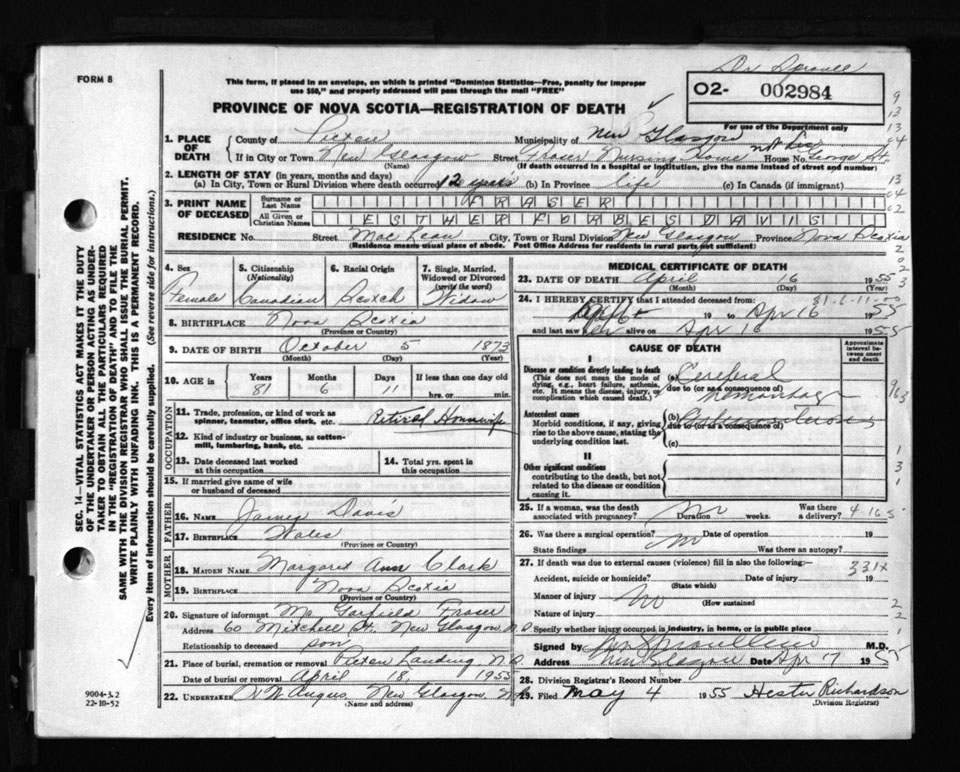 FORM 8
This form, if placed in an envelope, on which is printed "Dominion Statistics—Free, penalty for improper
use $50," and properly addressed will pass through the mail "FREE"
PROVINCE OF NOVA SCOTIA—REGISTRATION OF DEATH
O2- 002984
For use of the Department only
1. PLACE OF DEATH
County of Pictou Municipality of New Glasgow
If in City or Town New Glasgow Street Fraser Nursing Home House No. George St.
(Name) (If death occurred in a hospital or institution, give name instead of street and number)
2. LENGTH OF STAY (in years, months and days)
(a) In City, Town or Rural Division where death occurred 12 years (b) In Province life (c) In Canada (if immigrant)
3. PRINT NAME OF DECEASED
Surname or Last Name FRASER
All Given or Christian Names ESTHER FORBES DAVIS
RESIDENCE No. Street MacLean City, Town or Rural Division New Glasgow Province Nova Scotia
(Residence means usual place of abode. Post Office Address for residents in rural parts not sufficient)
4. Sex Female
5. Citizenship (Nationality) Canadian
6. Racial Origin Scotch
7. Single, Married, Widowed or Divorced (write the word) Widow
8. BIRTHPLACE Nova Scotia
(Province or Country)
9. DATE OF BIRTH October 5 1873
(Month) (Day) (Year)
10. AGE in Years 81 Months 6 Days 11 If less than one day old
hrs. or min.
OCCUPATION
11. Trade, profession, or kind of work as spinner, teamster, office clerk, etc. Retired Housewife
12. Kind of industry or business, as cotton-mill, lumbering, bank, etc.
13. Date deceased last worked at this occupation
14. Total yrs. spent in this occupation
15. If married give name of wife or husband of deceased
FATHER
16. NAME James Davis
17. BIRTHPLACE Wales
(Province or Country)
MOTHER
18. MAIDEN NAME Margaret Ann Clark
19. BIRTHPLACE Nova Scotia
(Province or Country)
20. Signature of informant Garfield Fraser
Address 60 Mitchell St. New Glasgow, N.S.
Relationship to deceased son
21. Place of burial, cremation or removal Pictou Landing, N.S.
Date of burial or removal April 18, 1955
22. UNDERTAKER Angus, New Glasgow, N.S.
(Name and address)
MEDICAL CERTIFICATE OF DEATH
23. DATE OF DEATH April 16 1955
(Month) (Day) (Year)
24. I HEREBY CERTIFY that I attended deceased from:
19 to Apr 16 1955
and last saw her alive on Apr 16 1955
CAUSE OF DEATH
Approximate interval between onset and death
I
Disease or condition directly leading to death
(This does not mean the mode of dying, e.g., heart failure, asthenia, etc. It means the disease, injury, or complication which caused death.)
(a) Cerebral
due to (or as a consequence of)
hemorrhage
Antecedent causes
Morbid conditions, if any, giving rise to the above cause, stating the underlying condition last.
(b)
due to (or as a consequence of)
(c)
II
Other significant conditions
contributing to the death, but not related to the disease or condition causing it.
25. If a woman, was the death associated with pregnancy? No Duration weeks. Was there a delivery?
26. Was there a surgical operation? No Date of operation 19
State findings Was there an autopsy?
27. If death was due to external causes (violence) fill in also the following:—
Accident, suicide or homicide? Date of injury 19
(State which)
Manner of injury No
(How sustained)
Nature of injury
Specify whether injury occurred in industry, in home, or in public place
Signed by M.D.
Address New Glasgow Date Apr 17 1955
28. Division Registrar's Record Number
29. Filed May 4 1955 Hester Richardson
(Division Registrar)
331X
SEC. 14—VITAL STATISTICS ACT MAKES IT THE DUTY
OF THE UNDERTAKER OR PERSON ACTING AS UNDER-
TAKER TO OBTAIN ALL THE PARTICULARS REQUIRED
IN THE "REGISTRATION OF DEATH" AND TO FILE THE
SAME WITH THE DIVISION REGISTRAR WHO SHALL ISSUE THE BURIAL PERMIT.
WRITE PLAINLY WITH UNFADING INK. THIS IS A PERMANENT RECORD.
Every item of information should be carefully supplied. (See reverse side for instructions.)
9004-3.2
22-10-52